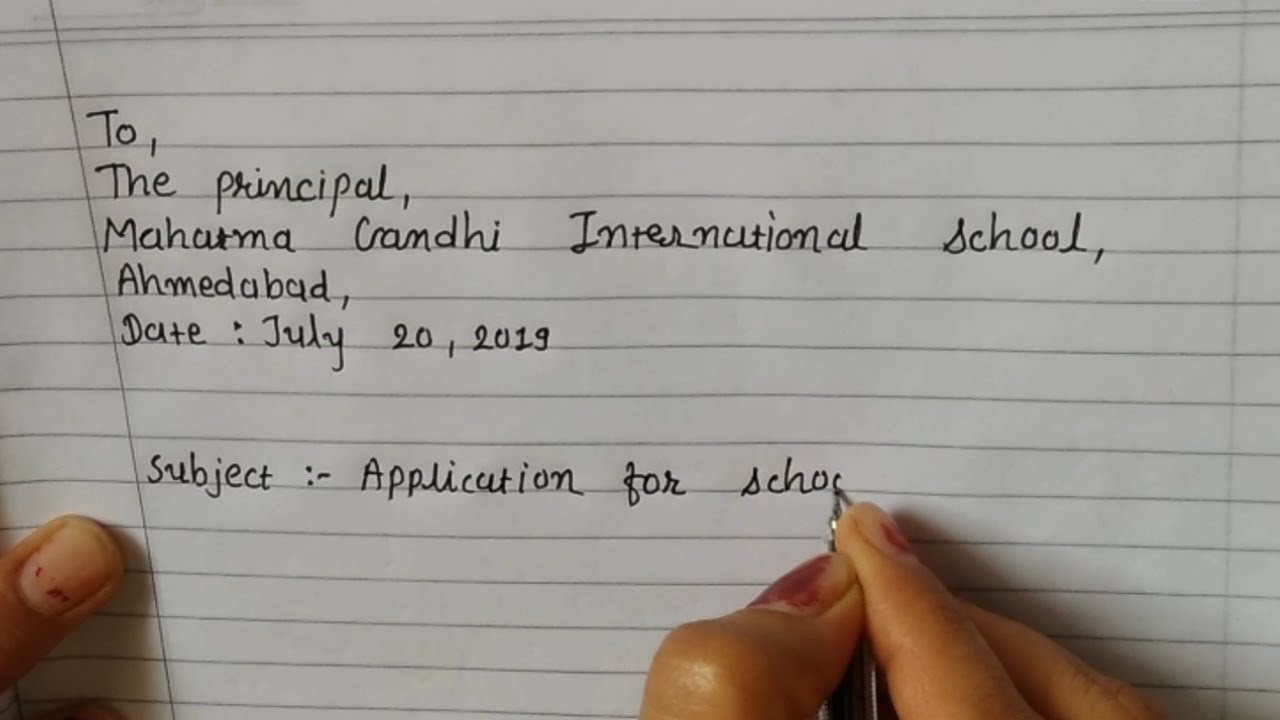 To,
The principal,
Mahatma Gandhi International school,
Ahmedabad,
Date : July 20, 2019
Subject :- Application for schoo